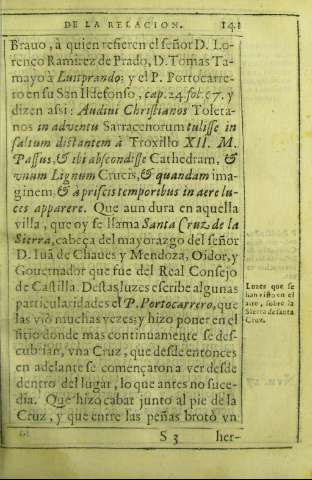 DE LA RELACION. 141
Brauo, à quien refieren el señor D. Lo-
renço Ramirez de Prado, D. Tomas Ta-
mayo à Luitprando: y el P. Portocarre-
ro en su San Ildefonso, cap. 24. fol. 67. y
dizen assi: Audiui Christianos Toleta-
nos in aduentu Sarracenorum tulisse in
saltum distantem à Troxillo XII. M.
Passus, & ibi abscondisse Cathedram, &
vnum Lignum Crucis, & quandam ima-
ginem, & à priscis temporibus in aere lu-
ces apparere. Que aun dura en aquella
villa, que oy se llama Santa Cruz de la
Sierra, cabeça del mayorazgo del señor
D. Iuā de Chaues y Mendoza, Oidor, y
Gouernador que fue del Real Consejo
de Castilla. Destas luzes escribe algunas
particularidades el P. Portocarrero, que
las viò muchas vezes; y hizo poner en el
sitio donde mas continuamente se des-
cubrian, vna Cruz, que desde entonces
en adelante se començaron a ver desde
dentro del lugar, lo que antes no suce-
dia. Que hizo cabar junto al pie de la
Cruz, y que entre las peñas brotò vn
S 3 her-
Luzes que se
han visto en el
aire, sobre la
Sierra de santa
Cruz.